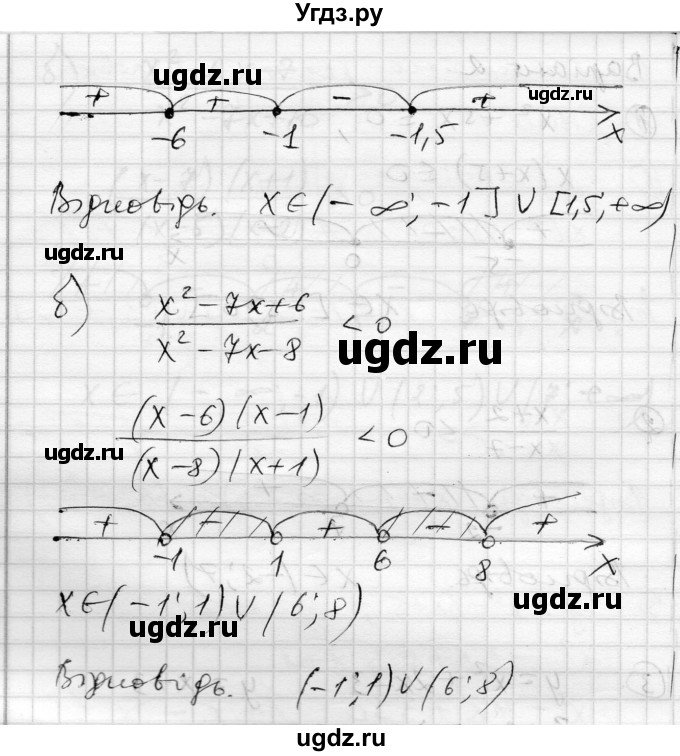 Угдз.ру
ugdz.ru
ugdz.ru
+ + - +
-6 -1 -1,5 x
Відповідь. x∈(-∞; -1]∪[1,5; +∞)
ugdz.ru
б) x² - 7x + 6 / x² - 7x - 8 < 0
ugdz.ru
(x - 6)(x - 1) / (x - 8)(x + 1) < 0
ugdz.ru
+ - + - +
-1 1 6 8 x
ugdz.ru
x∈(-1; 1)∪(6; 8)
ugdz.ru
Відповідь. (-1; 1)∪(6; 8)
ugdz.ru
ugdz.ru